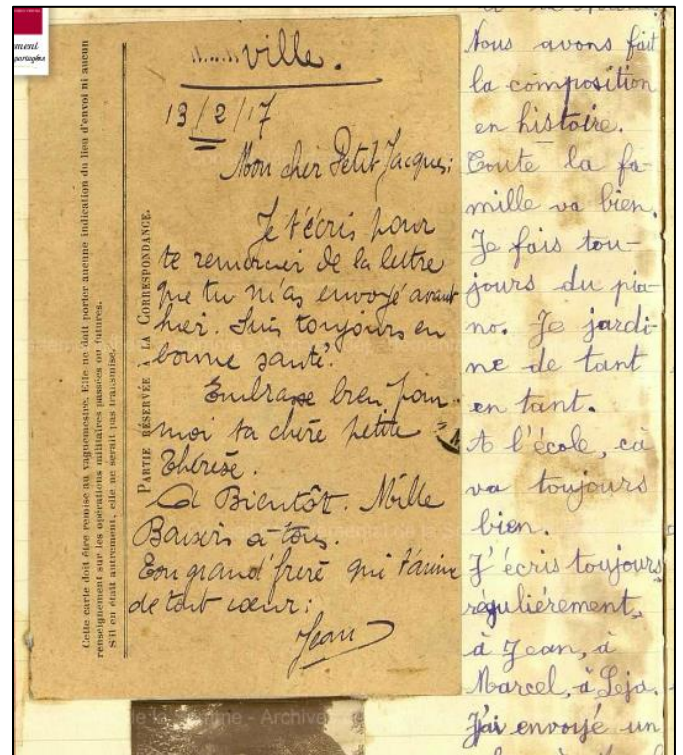 Cette carte doit être remise au vaguemestre. Elle ne doit porter aucune indication du lieu d'envoi ni aucun
renseignement sur les opérations militaires passées ou futures.
S'il en était autrement, elle ne serait pas transmise.
PARTIE RÉSERVÉE A LA CORRESPONDANCE.
......ville.
13/2/17
Mon cher Petit Jacques;
Je t'écris pour
te remercier de la lettre
que tu m'as envoyé avant
hier. Suis toujours en
bonne santé.
Embrasse bien pour
moi ta chère petite
Thérèse.
A Bientôt. Mille
Baisers à tous.
Ton grand frère qui t'aime
de tout cœur:
Jean
Nous avons fait
la composition
en histoire.
Toute la fa-
mille va bien.
Je fais tou-
jours du pia-
no. Je jardi-
ne de tant
en tant.
A l'école, cà
va toujours
bien.
J'écris toujours
régulièrement,
à Jean, à
Marcel, à Léja.
J'ai envoyé un